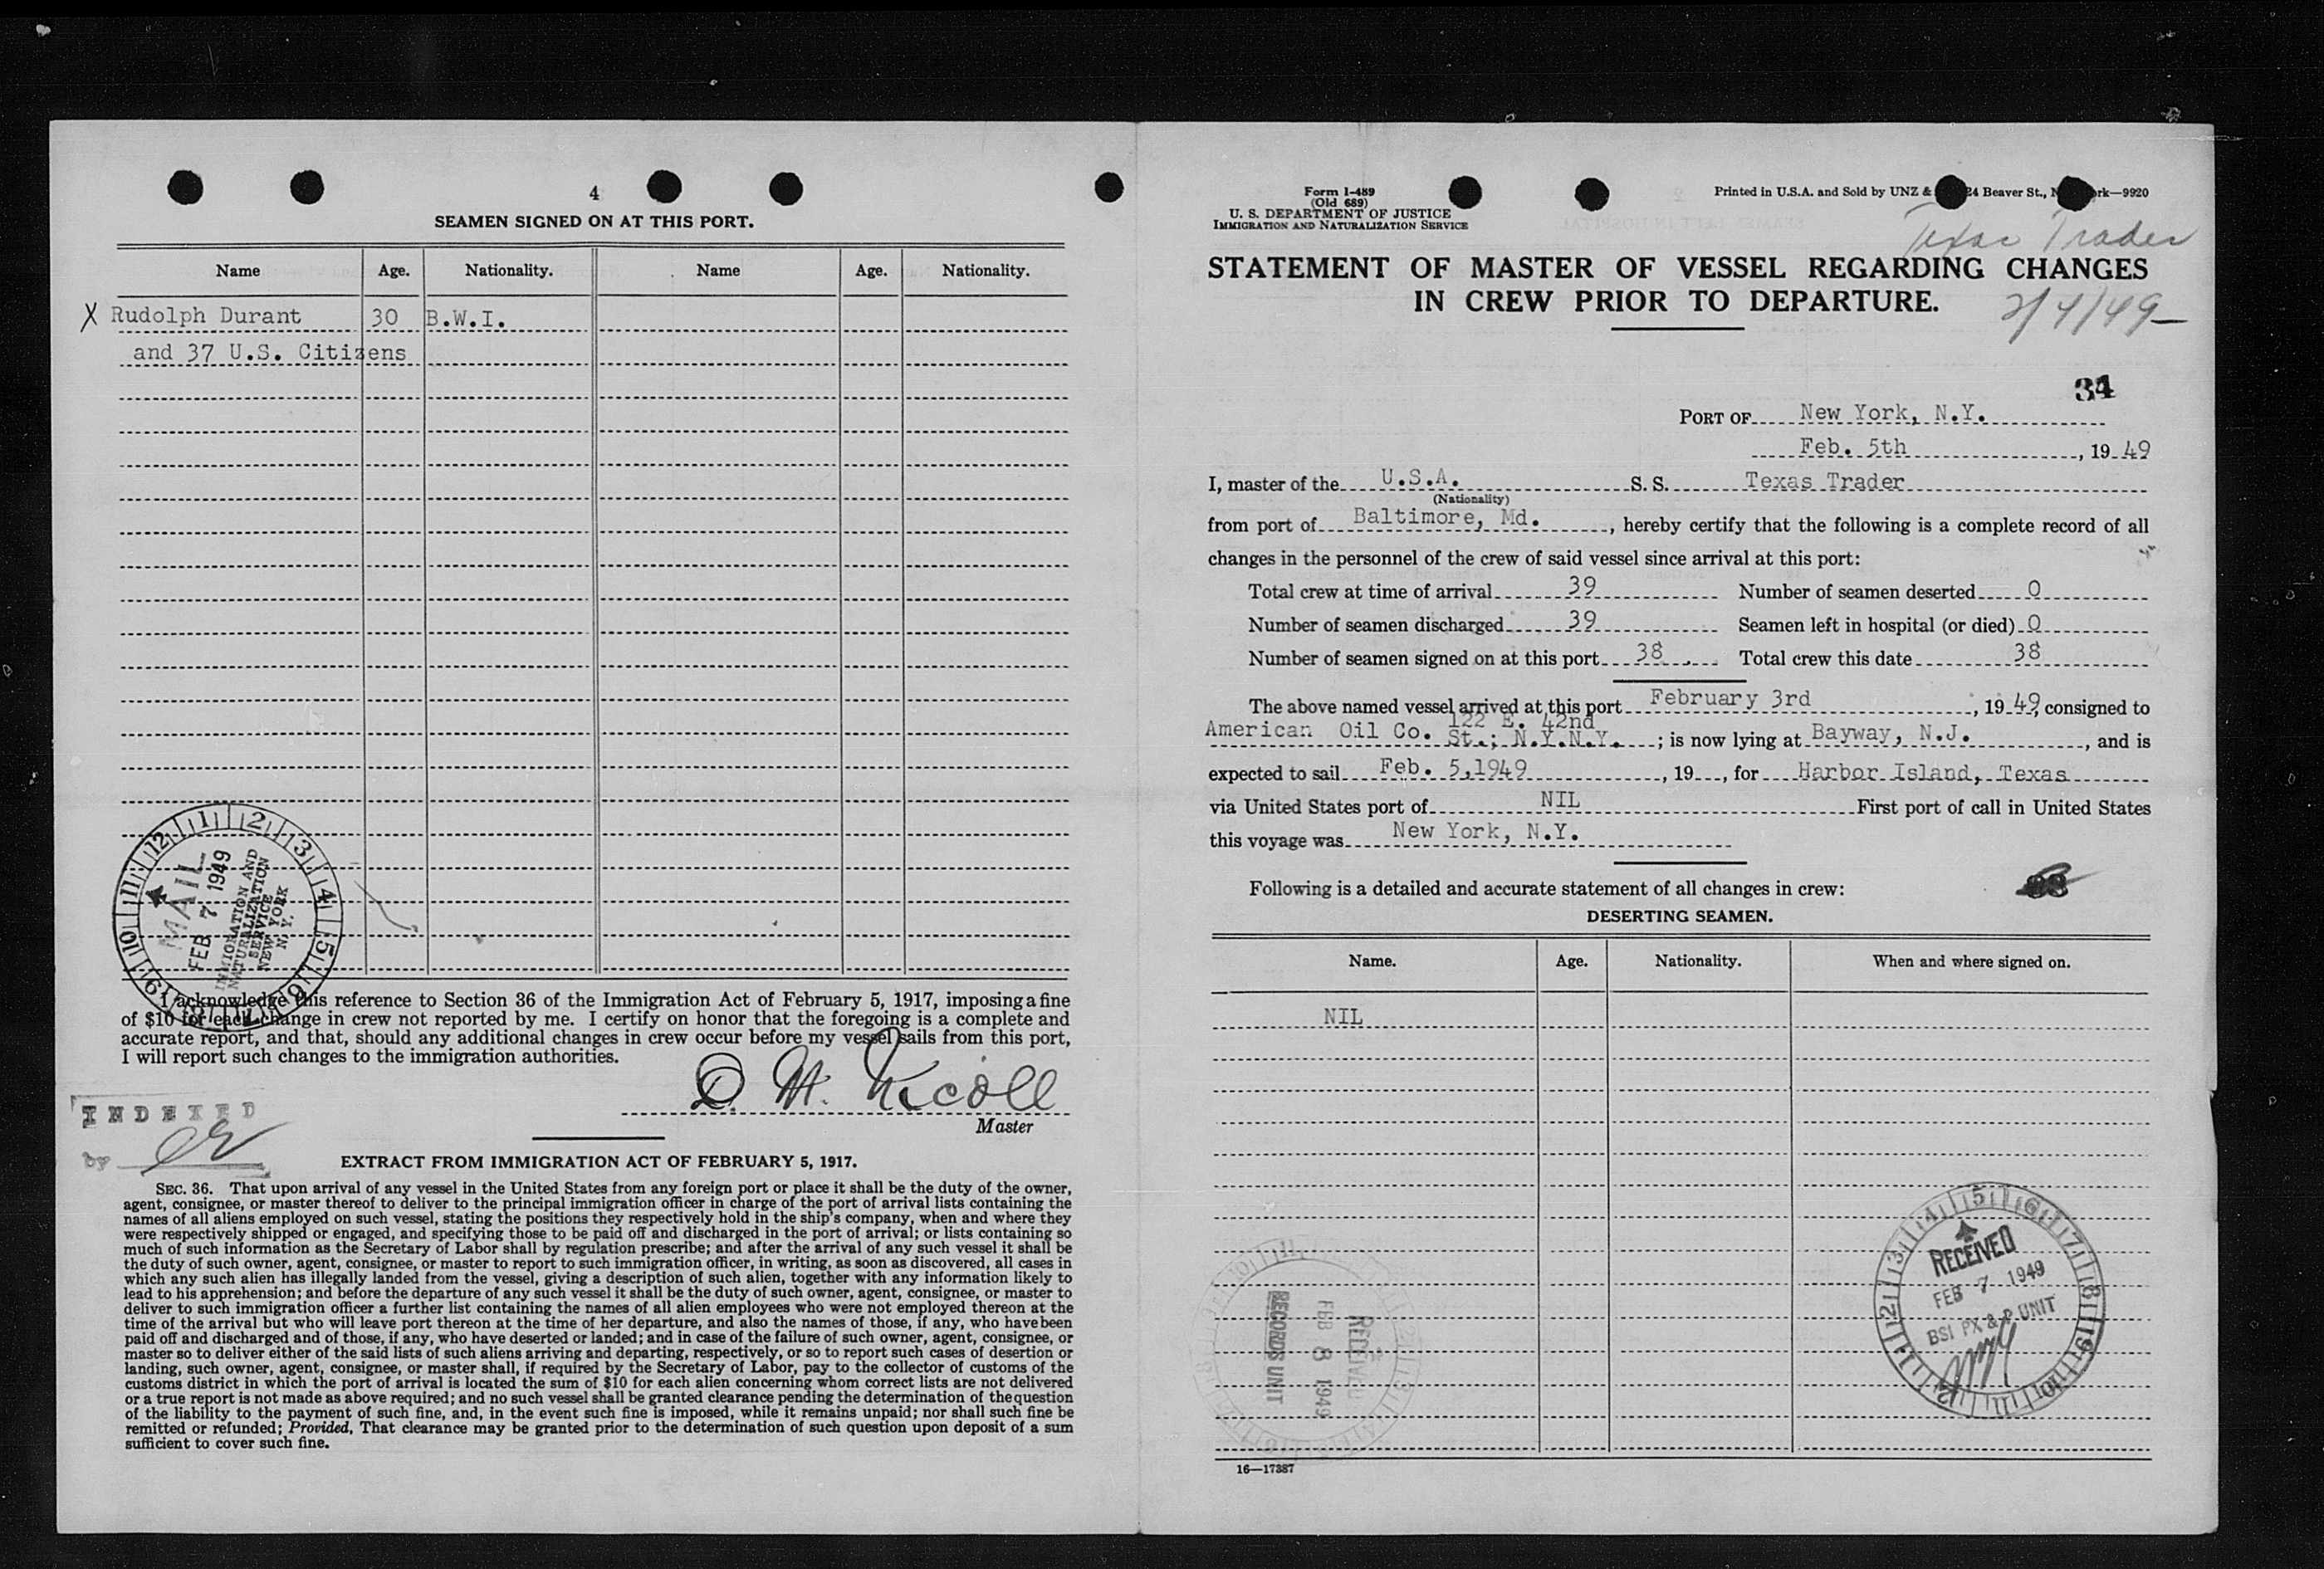 4
SEAMEN SIGNED ON AT THIS PORT.
Name Age. Nationality. Name Age. Nationality.
X Rudolph Durant 30 B.W.I.
and 37 U.S. Citizens
MAIL
FEB 7 1949
IMMIGRATION AND
NATURALIZATION
SERVICE
NEW YORK
N. Y.
I acknowledge this reference to Section 36 of the Immigration Act of February 5, 1917, imposing a fine
of $10 for each change in crew not reported by me. I certify on honor that the foregoing is a complete and
accurate report, and that, should any additional changes in crew occur before my vessel sails from this port,
I will report such changes to the immigration authorities.
Master
INDEXED
by
EXTRACT FROM IMMIGRATION ACT OF FEBRUARY 5, 1917.
SEC. 36. That upon arrival of any vessel in the United States from any foreign port or place it shall be the duty of the owner,
agent, consignee, or master thereof to deliver to the principal immigration officer in charge of the port of arrival lists containing the
names of all aliens employed on such vessel, stating the positions they respectively hold in the ship's company, when and where they
were respectively shipped or engaged, and specifying those to be paid off and discharged in the port of arrival; or lists containing so
much of such information as the Secretary of Labor shall by regulation prescribe; and after the arrival of any such vessel it shall be
the duty of such owner, agent, consignee, or master to report to such immigration officer, in writing, as soon as discovered, all cases in
which any such alien has illegally landed from the vessel, giving a description of such alien, together with any information likely to
lead to his apprehension; and before the departure of any such vessel it shall be the duty of such owner, agent, consignee, or master to
deliver to such immigration officer a further list containing the names of all alien employees who were not employed thereon at the
time of the arrival but who will leave port thereon at the time of her departure, and also the names of those, if any, who have been
paid off and discharged and of those, if any, who have deserted or landed; and in case of the failure of such owner, agent, consignee, or
master so to deliver either of the said lists of such aliens arriving and departing, respectively, or so to report such cases of desertion or
landing, such owner, agent, consignee, or master shall, if required by the Secretary of Labor, pay to the collector of customs of the
customs district in which the port of arrival is located the sum of $10 for each alien concerning whom correct lists are not delivered
or a true report is not made as above required; and no such vessel shall be granted clearance pending the determination of the question
of the liability to the payment of such fine, and, in the event such fine is imposed, while it remains unpaid; nor shall such fine be
remitted or refunded; Provided, That clearance may be granted prior to the determination of such question upon deposit of a sum
sufficient to cover such fine.
Form I-489
(Old 689)
U. S. DEPARTMENT OF JUSTICE
IMMIGRATION AND NATURALIZATION SERVICE
Printed in U.S.A. and Sold by UNZ & 24 Beaver St., N rk—9920
Texas Trader
STATEMENT OF MASTER OF VESSEL REGARDING CHANGES
IN CREW PRIOR TO DEPARTURE.
2/4/49
34
PORT OF New York, N.Y.
Feb. 5th, 19 49
I, master of the U.S.A. S. S. Texas Trader
(Nationality)
from port of Baltimore, Md., hereby certify that the following is a complete record of all
changes in the personnel of the crew of said vessel since arrival at this port:
Total crew at time of arrival 39 Number of seamen deserted 0
Number of seamen discharged 39 Seamen left in hospital (or died) 0
Number of seamen signed on at this port 38 Total crew this date 38
The above named vessel arrived at this port February 3rd, 19 49, consigned to
American Oil Co. 122 E. 42nd St.; N.Y.N.Y.; is now lying at Bayway, N.J., and is
expected to sail Feb. 5,1949, 19 , for Harbor Island, Texas
via United States port of NIL First port of call in United States
this voyage was New York, N.Y.
Following is a detailed and accurate statement of all changes in crew:
DESERTING SEAMEN.
Name. Age. Nationality. When and where signed on.
NIL
RECEIVED
FEB 7 1949
BSI PX & P UNIT
RECEIVED
FEB 8 1949
RECORDS UNIT
16—17387